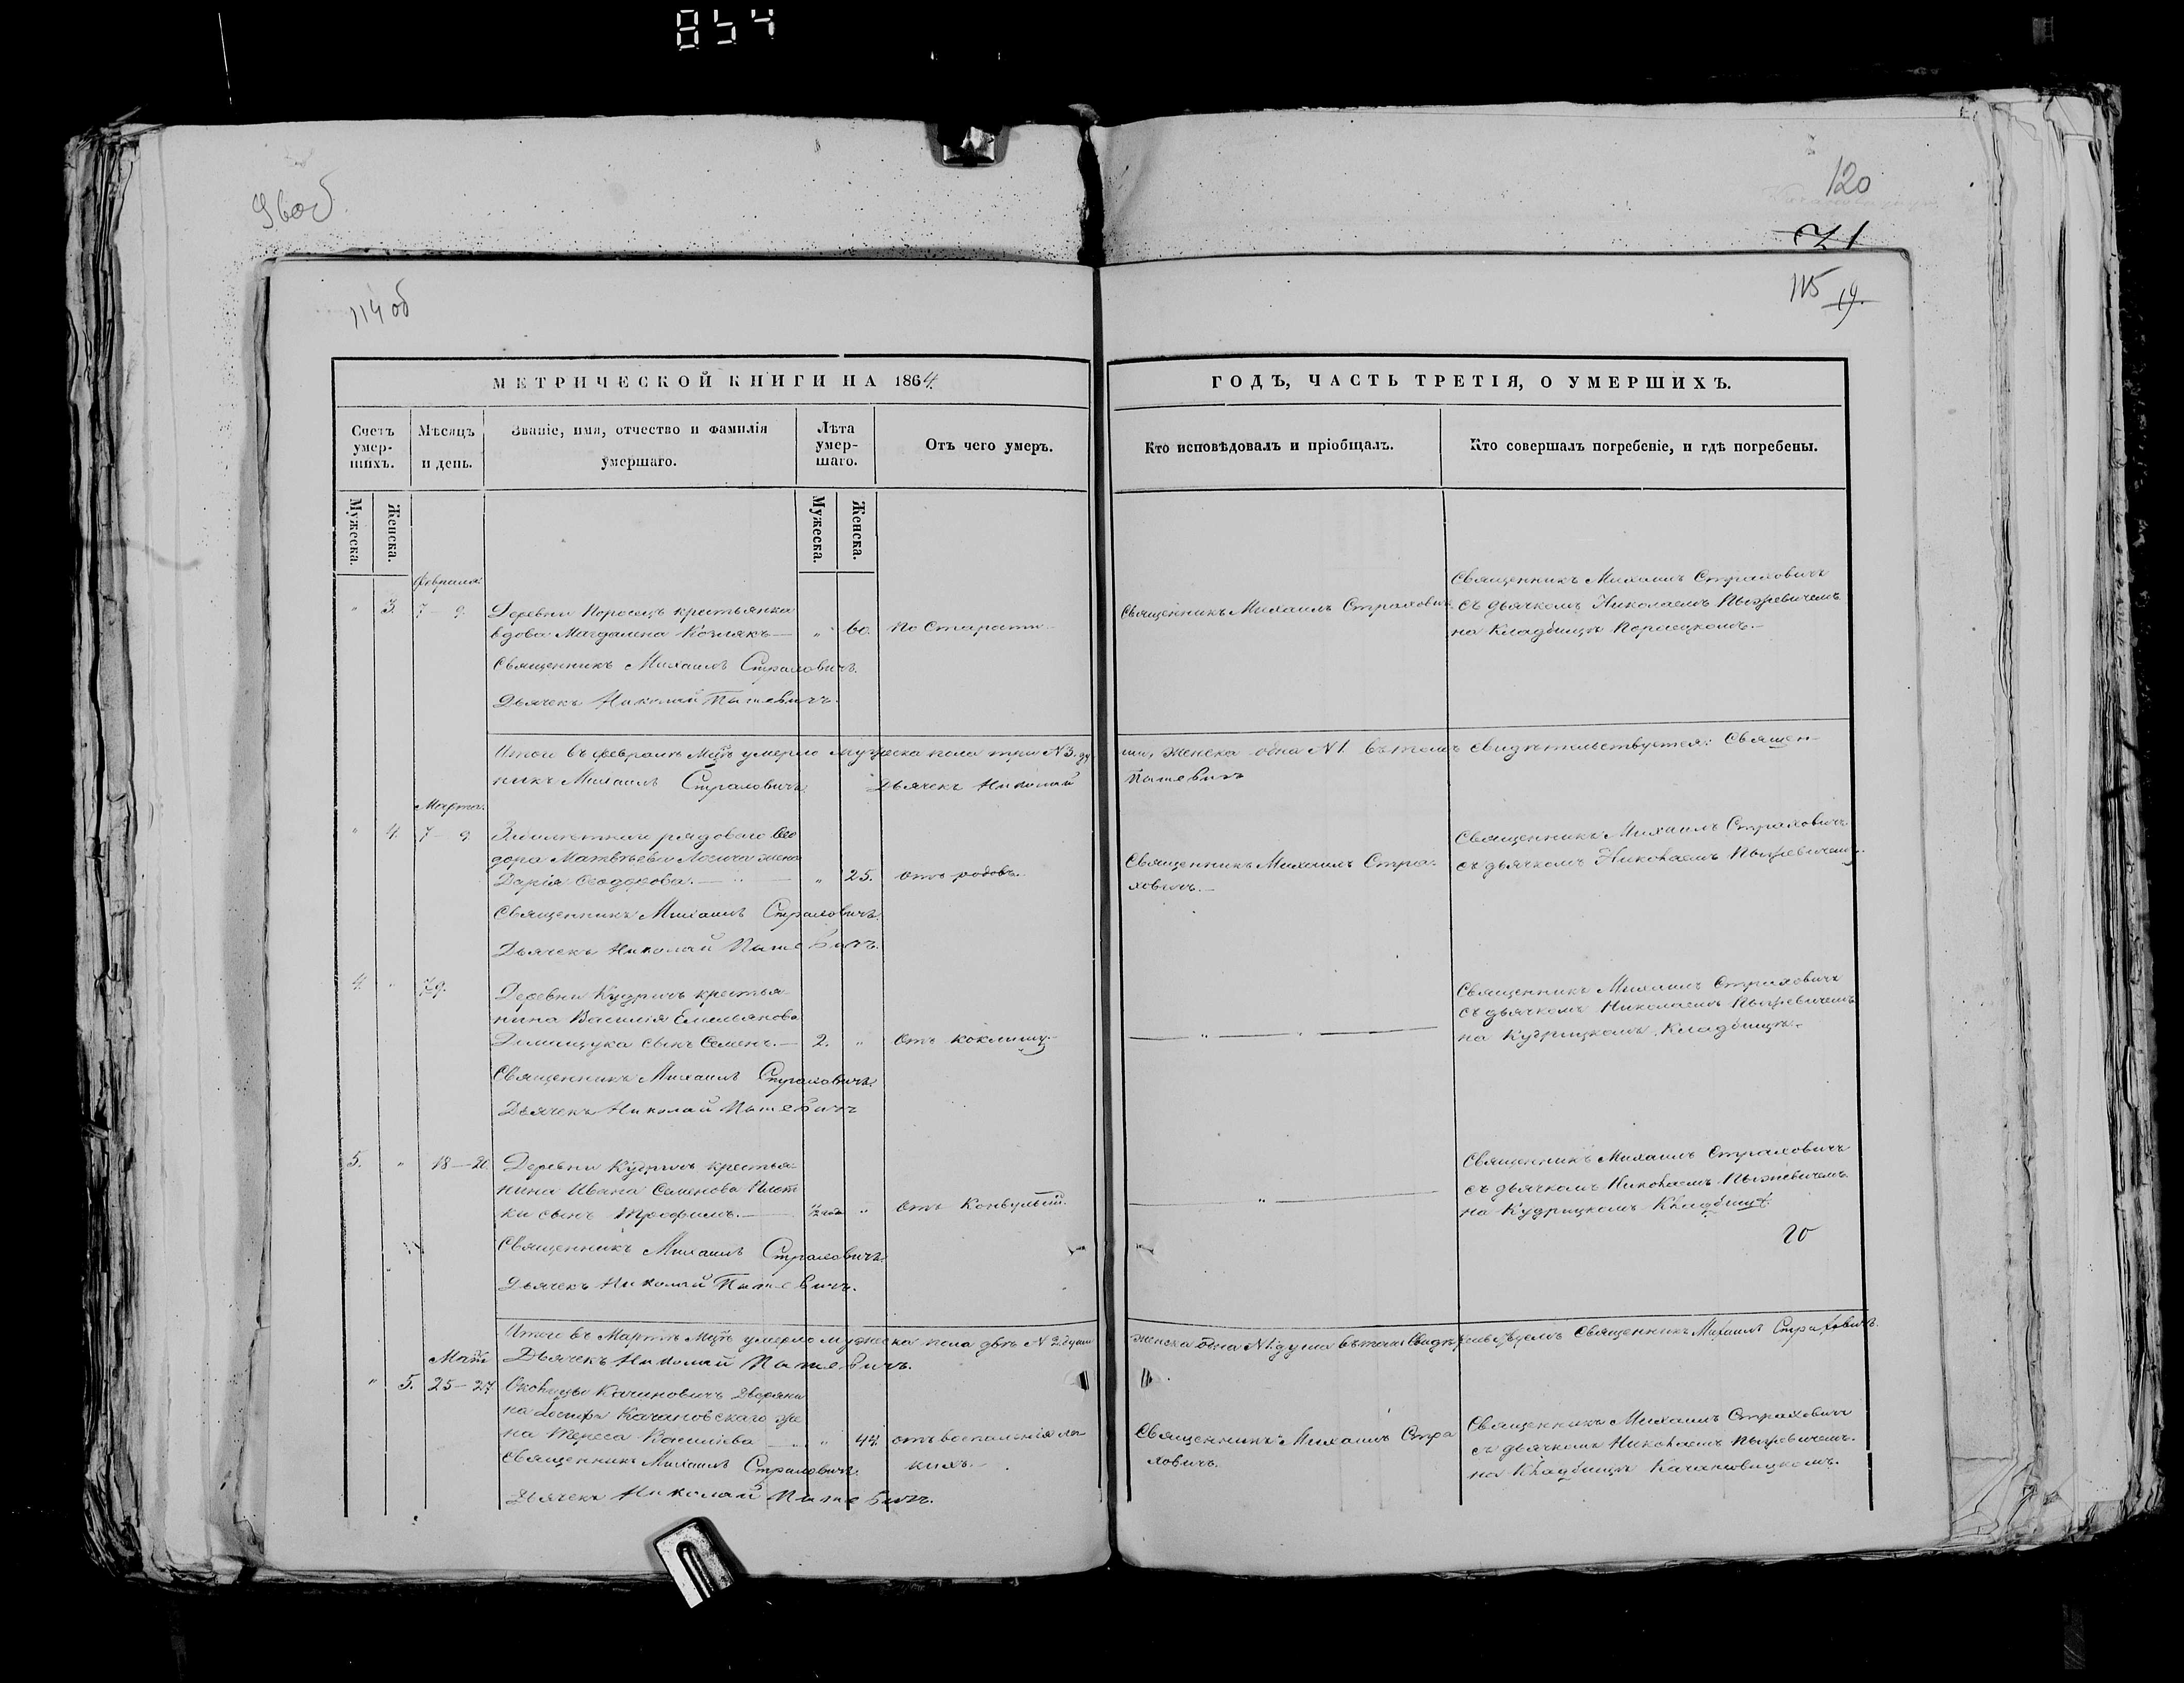 854
120
71
114 об
115
19.
МЕТРИЧЕСКОЙ КНИГИ НА 1864.
ГОДЪ, ЧАСТЬ ТРЕТІЯ, О УМЕРШИХЪ.
Счетъ умер-шихъ.
Мѣсяцъ и день.
Званіе, имя, отчество и фамилія умершаго.
Лѣта умер-шаго.
Отъ чего умеръ.
Кто исповѣдовалъ и пріобщалъ.
Кто совершалъ погребеніе, и гдѣ погребены.
Мужеска.
Женска.
Мужеска.
Женска.
Февраля.
" 3. 7 — 9. Деревни Поросецъ крестьянка
вдова Магдалена Козлякъ — " 60. по Старости
Священникъ Михаилъ Страховичъ.
Дьячекъ Николай Пыжевичъ.
Священникъ Михаилъ Страховичъ.
Священникъ Михаилъ Страховичъ
съ дьячкомъ Николаемъ Пыжевичемъ
на Кладбищѣ Поросецкомъ.—
Итого въ февралѣ Мцѣ умерло мужеска пола три №3. ду
ши, женска одна №1. въ томъ свидѣтельствуется: Священ-
никъ Михаилъ Страховичъ. Дьячекъ Николай
Пыжевичъ
Марта.
" 4. 7 — 9. рядоваго Ѳео
дора Матвѣева жена
Дарія Ѳеодорова. — " 25. отъ родовъ.
Священникъ Михаилъ Страховичъ.
Дьячекъ Николай Пыжевичъ.
Священникъ Михаилъ Стра-
ховичъ.—
Священникъ Михаилъ Страховичъ
съ дьячкомъ Николаемъ Пыжевичемъ.
4. " 7 9. Деревни Кудричъ крестья-
нина Василія Емельянова
Демищука сынъ Семенъ.— 2. " отъ коклюшу.
Священникъ Михаилъ Страховичъ.
Дьячекъ Николай Пыжевичъ
Священникъ Михаилъ Страховичъ
съ дьячкомъ Николаемъ Пыжевичемъ
на Кудрицкомъ Кладбищѣ.
5. " 18 — 20. Деревни Кудричъ крестья-
нина Ивана Семенова
ки сынъ Трофимъ.— " отъ Конвульсій.
Священникъ Михаилъ Страховичъ.
Дьячекъ Николай Пыжевичъ.
Священникъ Михаилъ Страховичъ
съ дьячкомъ Николаемъ Пыжевичемъ
на Кудрицкомъ Кладбищѣ
20
Итого въ Мартѣ Мцѣ умерло мужеска пола двѣ №2. души
женска одна №1. душа въ томъ свидѣтельствуемъ Священникъ Михаилъ Страховичъ.
Дьячекъ Николай Пыжевичъ.
Маія
" 5. 25 — 27. Околицы Качановичъ Дворяни
на Іосифа Качановскаго же
на Тереса Василіева — " 47. отъ воспаленія лег
кихъ.—
Священникъ Михаилъ Страховичъ.
Дьячекъ Николай Пыжевичъ.
Священникъ Михаилъ Стра
ховичъ.
Священникъ Михаилъ Страховичъ
съ дьячкомъ Николаемъ Пыжевичемъ.
на Кладбищѣ Качановицкомъ.